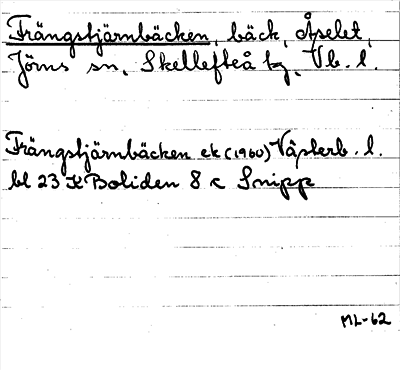 Trängstjärnbäcken, bäck, Åselet,
Jörns sn, Skellefteå tg, Vb. l.
Trängstjärnbäcken ek (1960) Västerb. l.
bl 23 K Boliden 8 c Snipp
ML-62